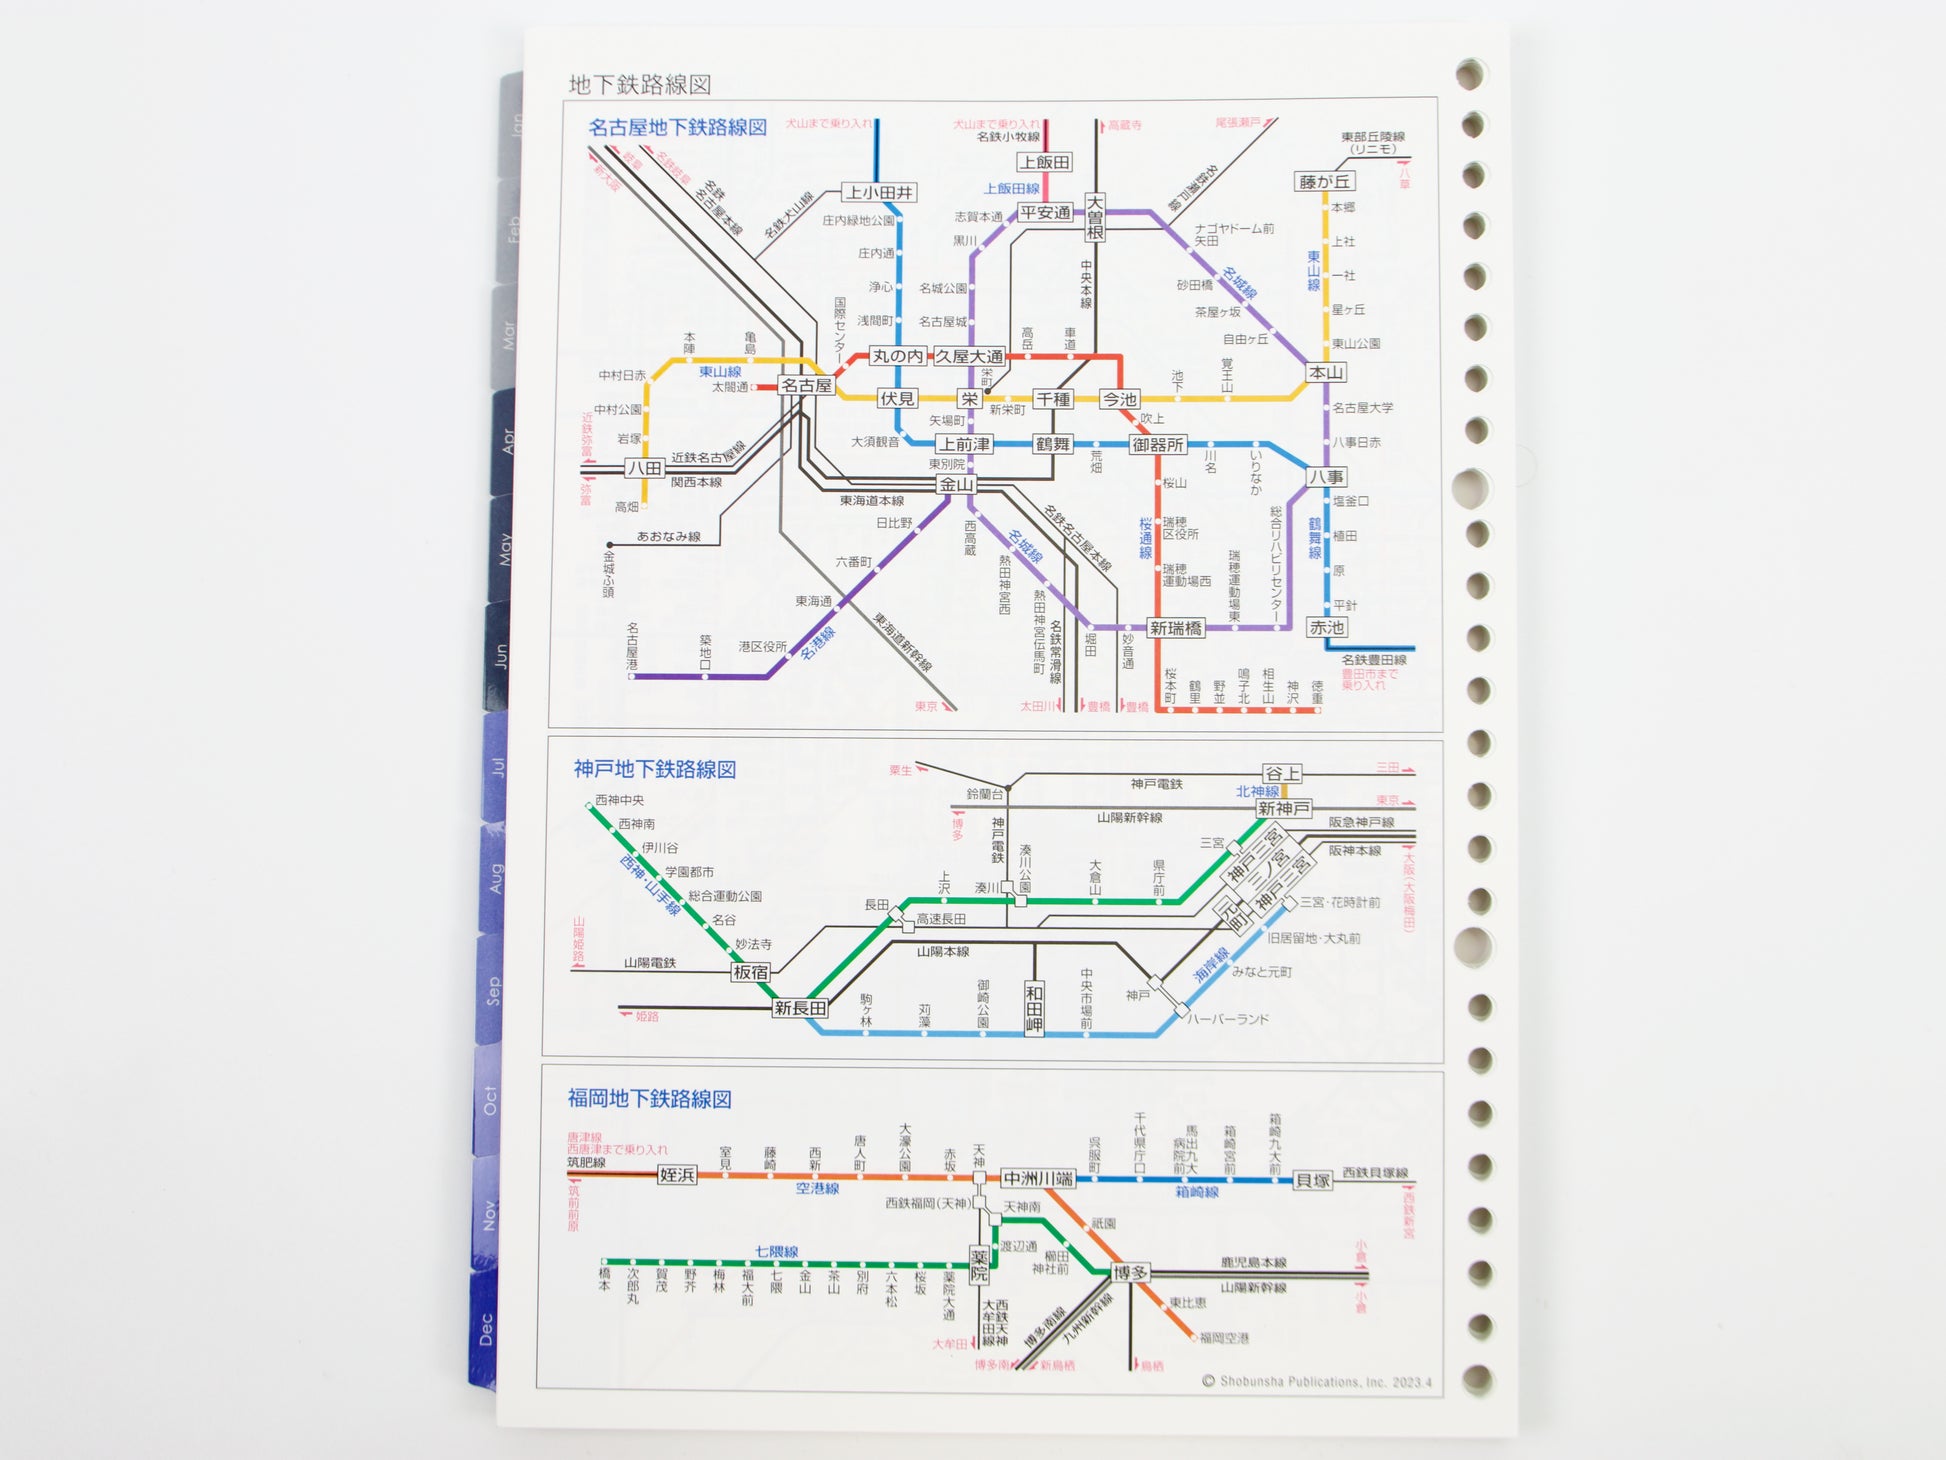 地下鉄路線図
名古屋地下鉄路線図
犬山まで乗り入れ
犬山まで乗り入れ
名鉄小牧線
高蔵寺
尾張瀬戸
東部丘陵線
(リニモ)
八草
新大阪
岐阜
名鉄岐阜
名鉄
名古屋本線
名鉄犬山線
上小田井
上飯田
上飯田線
平安通
大曽根
名鉄瀬戸線
藤が丘
庄内緑地公園
志賀本通
黒川
ナゴヤドーム前
矢田
本郷
上社
一社
星ヶ丘
東山公園
東山線
庄内通
浄心
浅間町
名城公園
名古屋城
中央本線
砂田橋
名城線
茶屋ヶ坂
自由ヶ丘
国際センター
本陣
亀島
丸の内
久屋大通
高岳
車道
本山
中村日赤
東山線
太閤通
名古屋
伏見
栄
栄町
新栄町
千種
今池
池下
覚王山
名古屋大学
中村公園
岩塚
近鉄弥富
矢場町
吹上
大須観音
上前津
鶴舞
荒畑
御器所
川名
いりなか
八事日赤
八事
八田
近鉄名古屋線
関西本線
弥富
高畑
東別院
金山
東海道本線
桜山
塩釜口
あおなみ線
金城ふ頭
日比野
西高蔵
名城線
名鉄名古屋本線
桜通線
瑞穂
区役所
総合リハビリセンター
鶴舞線
植田
原
平針
六番町
熱田神宮西
瑞穂
運動場西
瑞穂運動場東
東海通
熱田神宮伝馬町
名古屋港
築地口
港区役所
名港線
東海道新幹線
名鉄常滑線
堀田
妙音通
新瑞橋
赤池
名鉄豊田線
豊田市まで
乗り入れ
桜本町
鶴里
野並
鳴子北
相生山
神沢
徳重
東京
太田川
豊橋
豊橋
神戸地下鉄路線図
粟生
鈴蘭台
神戸電鉄
谷上
三田
北神線
新神戸
東京
西神中央
西神南
伊川谷
学園都市
総合運動公園
名谷
妙法寺
西神・山手線
博多
神戸電鉄
山陽新幹線
阪急神戸線
阪神本線
三宮
神戸三宮
三ノ宮
神戸三宮
大阪(大阪梅田)
上沢
湊川
湊川公園
大倉山
県庁前
長田
高速長田
元町
三宮・花時計前
旧居留地・大丸前
山陽姫路
山陽電鉄
板宿
山陽本線
海岸線
みなと元町
新長田
姫路
駒ヶ林
苅藻
御崎公園
和田岬
中央市場前
神戸
ハーバーランド
福岡地下鉄路線図
唐津線
西唐津まで乗り入れ
筑肥線
筑前前原
姪浜
室見
藤崎
西新
唐人町
大濠公園
赤坂
天神
空港線
中洲川端
呉服町
千代県庁口
馬出九大
病院前
箱崎宮前
箱崎九大前
箱崎線
貝塚
西鉄貝塚線
西鉄新宮
西鉄福岡(天神)
天神南
祇園
渡辺通
櫛田
神社前
七隈線
薬院
博多
鹿児島本線
山陽新幹線
小倉
小倉
橋本
次郎丸
賀茂
野芥
梅林
福大前
七隈
金山
茶山
別府
六本松
桜坂
薬院大通
西鉄天神
大牟田線
大牟田
博多南線
九州新幹線
東比恵
福岡空港
博多南
新鳥栖
鳥栖
© Shobunsha Publications, Inc. 2023.4
Jan
Feb
Mar
Apr
May
Jun
Jul
Aug
Sep
Oct
Nov
Dec